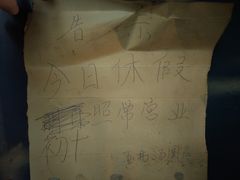 告示
今日休假
初十照常营业